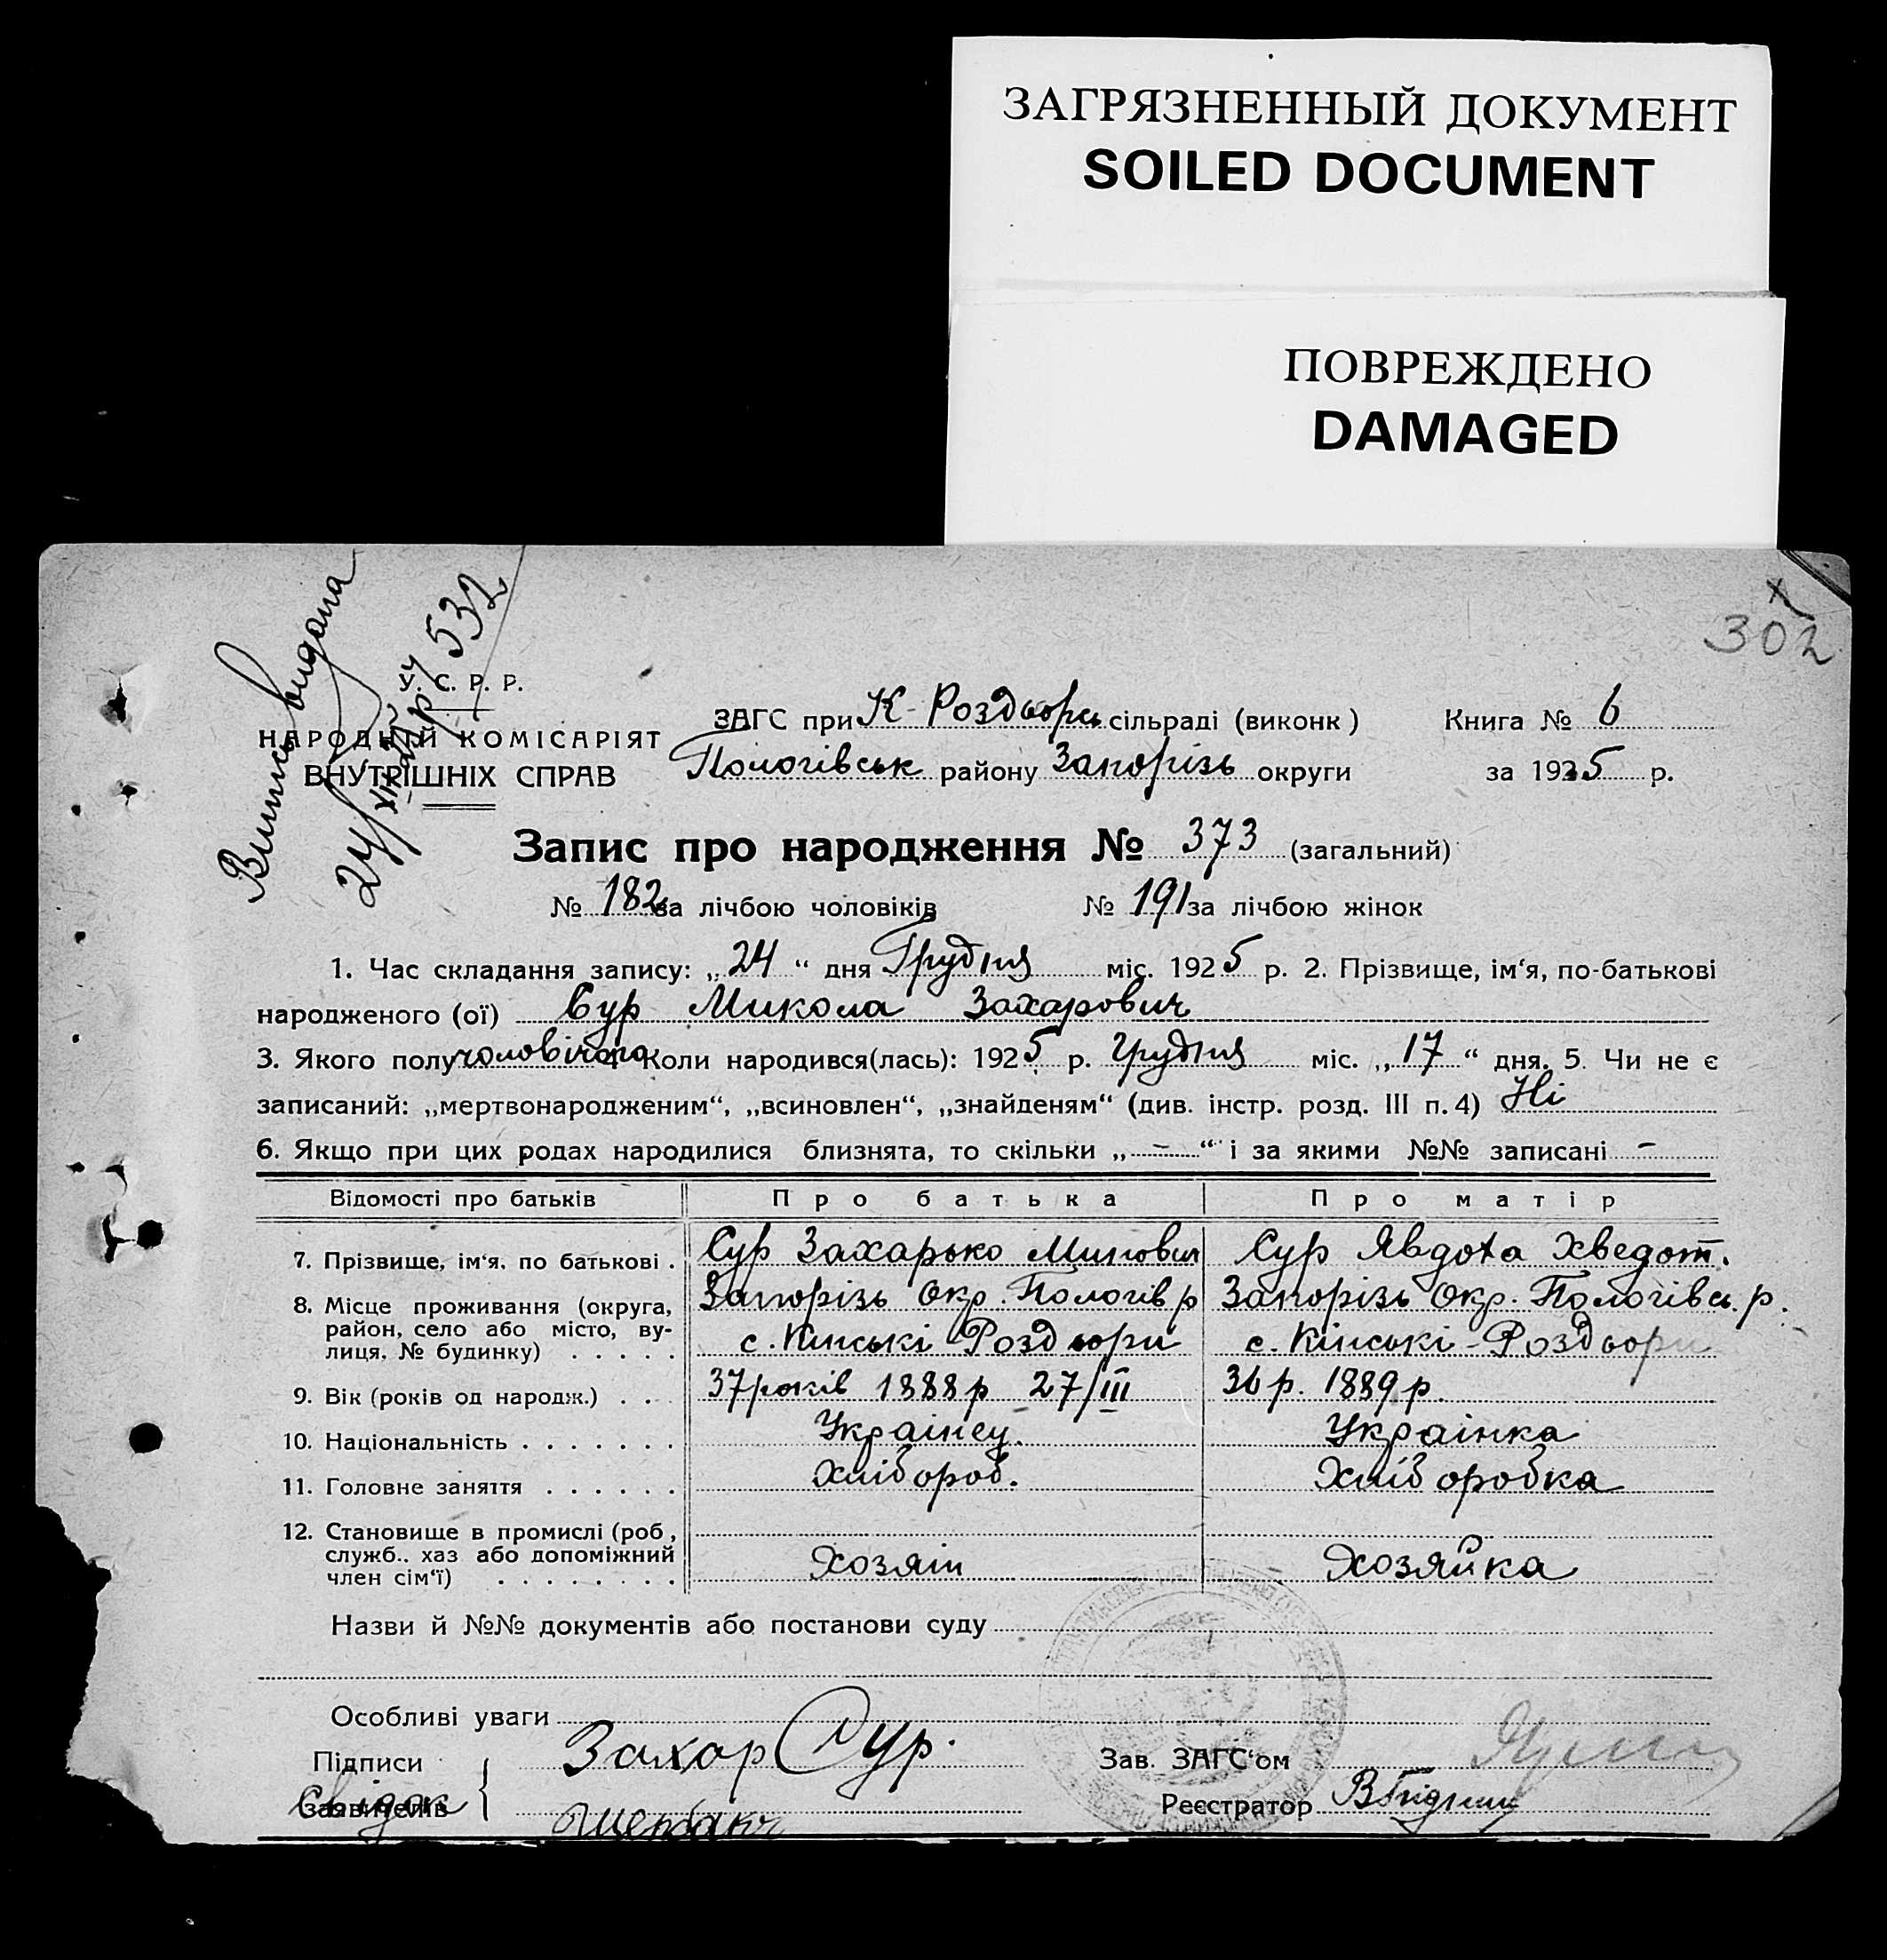 ЗАГРЯЗНЕННЫЙ ДОКУМЕНТ
SOILED DOCUMENT
ПОВРЕЖДЕНО
DAMAGED
302
Випись видана
24/XII 25 р 532
У. С. Р. Р.
НАРОДНІЙ КОМІСАРІЯТ
ВНУТРІШНІХ СПРАВ
ЗАГС при К-Роздорсь сільраді (виконк ) Книга № 6
Пологівськ району Запорізь округи за 1925 р.
Запис про народження № 373 (загальний)
№ 182 за лічбою чоловіків № 191 за лічбою жінок
1. Час складання запису: „ 24 “ дня Грудня міс. 1925 р. 2. Прізвище, ім‘я, по-батькові
народженого (ої) Сур Микола Захарович
3. Якого полу чоловічого 4 Коли народився(лась): 1925 р. Грудня міс. „ 17 “ дня. 5. Чи не є
записаний: „мертвонародженим“, „всиновлен“, „знайденям“ (див. інстр. розд. III п. 4) Ні
6. Якщо при цих родах народилися близнята, то скільки „ – “ і за якими №№ записані –
Відомості про батьків Про батька Про матір
7. Прізвище, ім‘я, по батькові . Сур Захарько Минович Сур Явдоха Хведот.
8. Місце проживання (округа, район, село або місто, вулиця, № будинку) . . . . . Запорізь Окр. Пологів р Запорізь Окр. Пологівсь. р.
с. Кінські Роздори с. Кінські-Роздори
9. Вік (років од народж.) . . . 37 років 1888 р 27/III 36 р. 1889 р.
10. Національність . . . . . . . Украінец. Украінка
11. Головне заняття . . . . . . Хлібороб. Хліборобка
12. Становище в промислі (роб, служб., хаз або допоміжний член сім‘ї) . . . . . . . . Хозяін Хозяйка
Назви й №№ документів або постанови суду
Особливі уваги
Підписи Захар Сур. Зав. ЗАГС‘ом
Заявителів Свідок Щербак Реєстратор